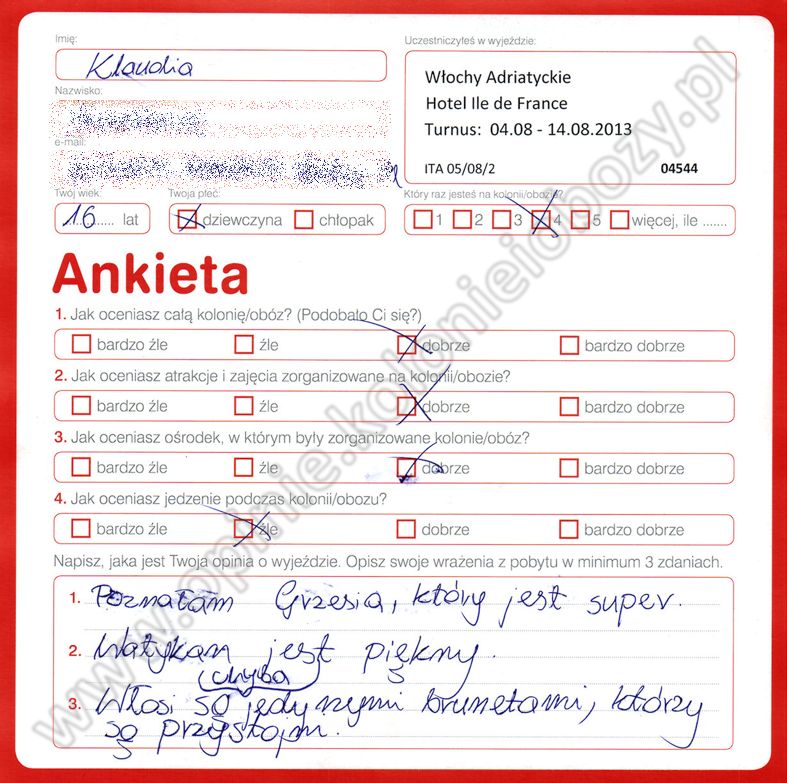 Imię:
Klaudia
Uczestniczyłeś w wyjeździe:
Włochy Adriatyckie
Hotel Ile de France
Turnus: 04.08 - 14.08.2013
ITA 05/08/2 04544
Nazwisko:
e-mail:
Twój wiek:
16 lat
Twoja płeć:
dziewczyna chłopak
Który raz jesteś na kolonii/obozie?
1 2 3 4 5 więcej, ile .......
Ankieta
1. Jak oceniasz całą kolonię/obóz? (Podobało Ci się?)
bardzo źle źle dobrze bardzo dobrze
2. Jak oceniasz atrakcje i zajęcia zorganizowane na kolonii/obozie?
bardzo źle źle dobrze bardzo dobrze
3. Jak oceniasz ośrodek, w którym były zorganizowane kolonie/obóz?
bardzo źle źle dobrze bardzo dobrze
4. Jak oceniasz jedzenie podczas kolonii/obozu?
bardzo źle źle dobrze bardzo dobrze
Napisz, jaka jest Twoja opinia o wyjeździe. Opisz swoje wrażenia z pobytu w minimum 3 zdaniach.
1. Poznałam Grzesia, który jest super.
2. Watykan jest piękny.
chyba
3. Włosi są jedynymi brunetami, którzy
są przystojni.
www.opinie.kolonieiobozy.pl